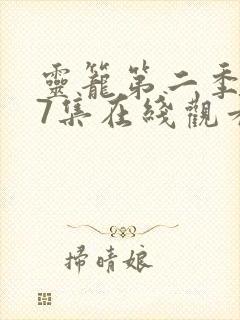 靈籠第二季
7集在綫觀看
掃晴娘